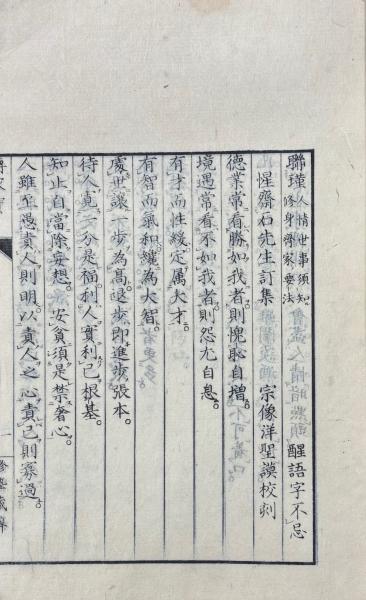 聯瑾人情世事須知修身齊家要法 醒語字不忌
惺齋石先生訂集 宗像洋聖謨校刻
德業常看勝如我者則愧恥自增
境遇常看不如我者則怨尤自息。
有才而性緩定属大才。
有智而氣和纔為大智。
處世讓一步為高。退步即進步張本。
待人寛一分是福。利人實利己根基。
知止自當除妄想。安貧須是禁奢心。
人雖至愚責人則明。以責人之心責己則寡過。